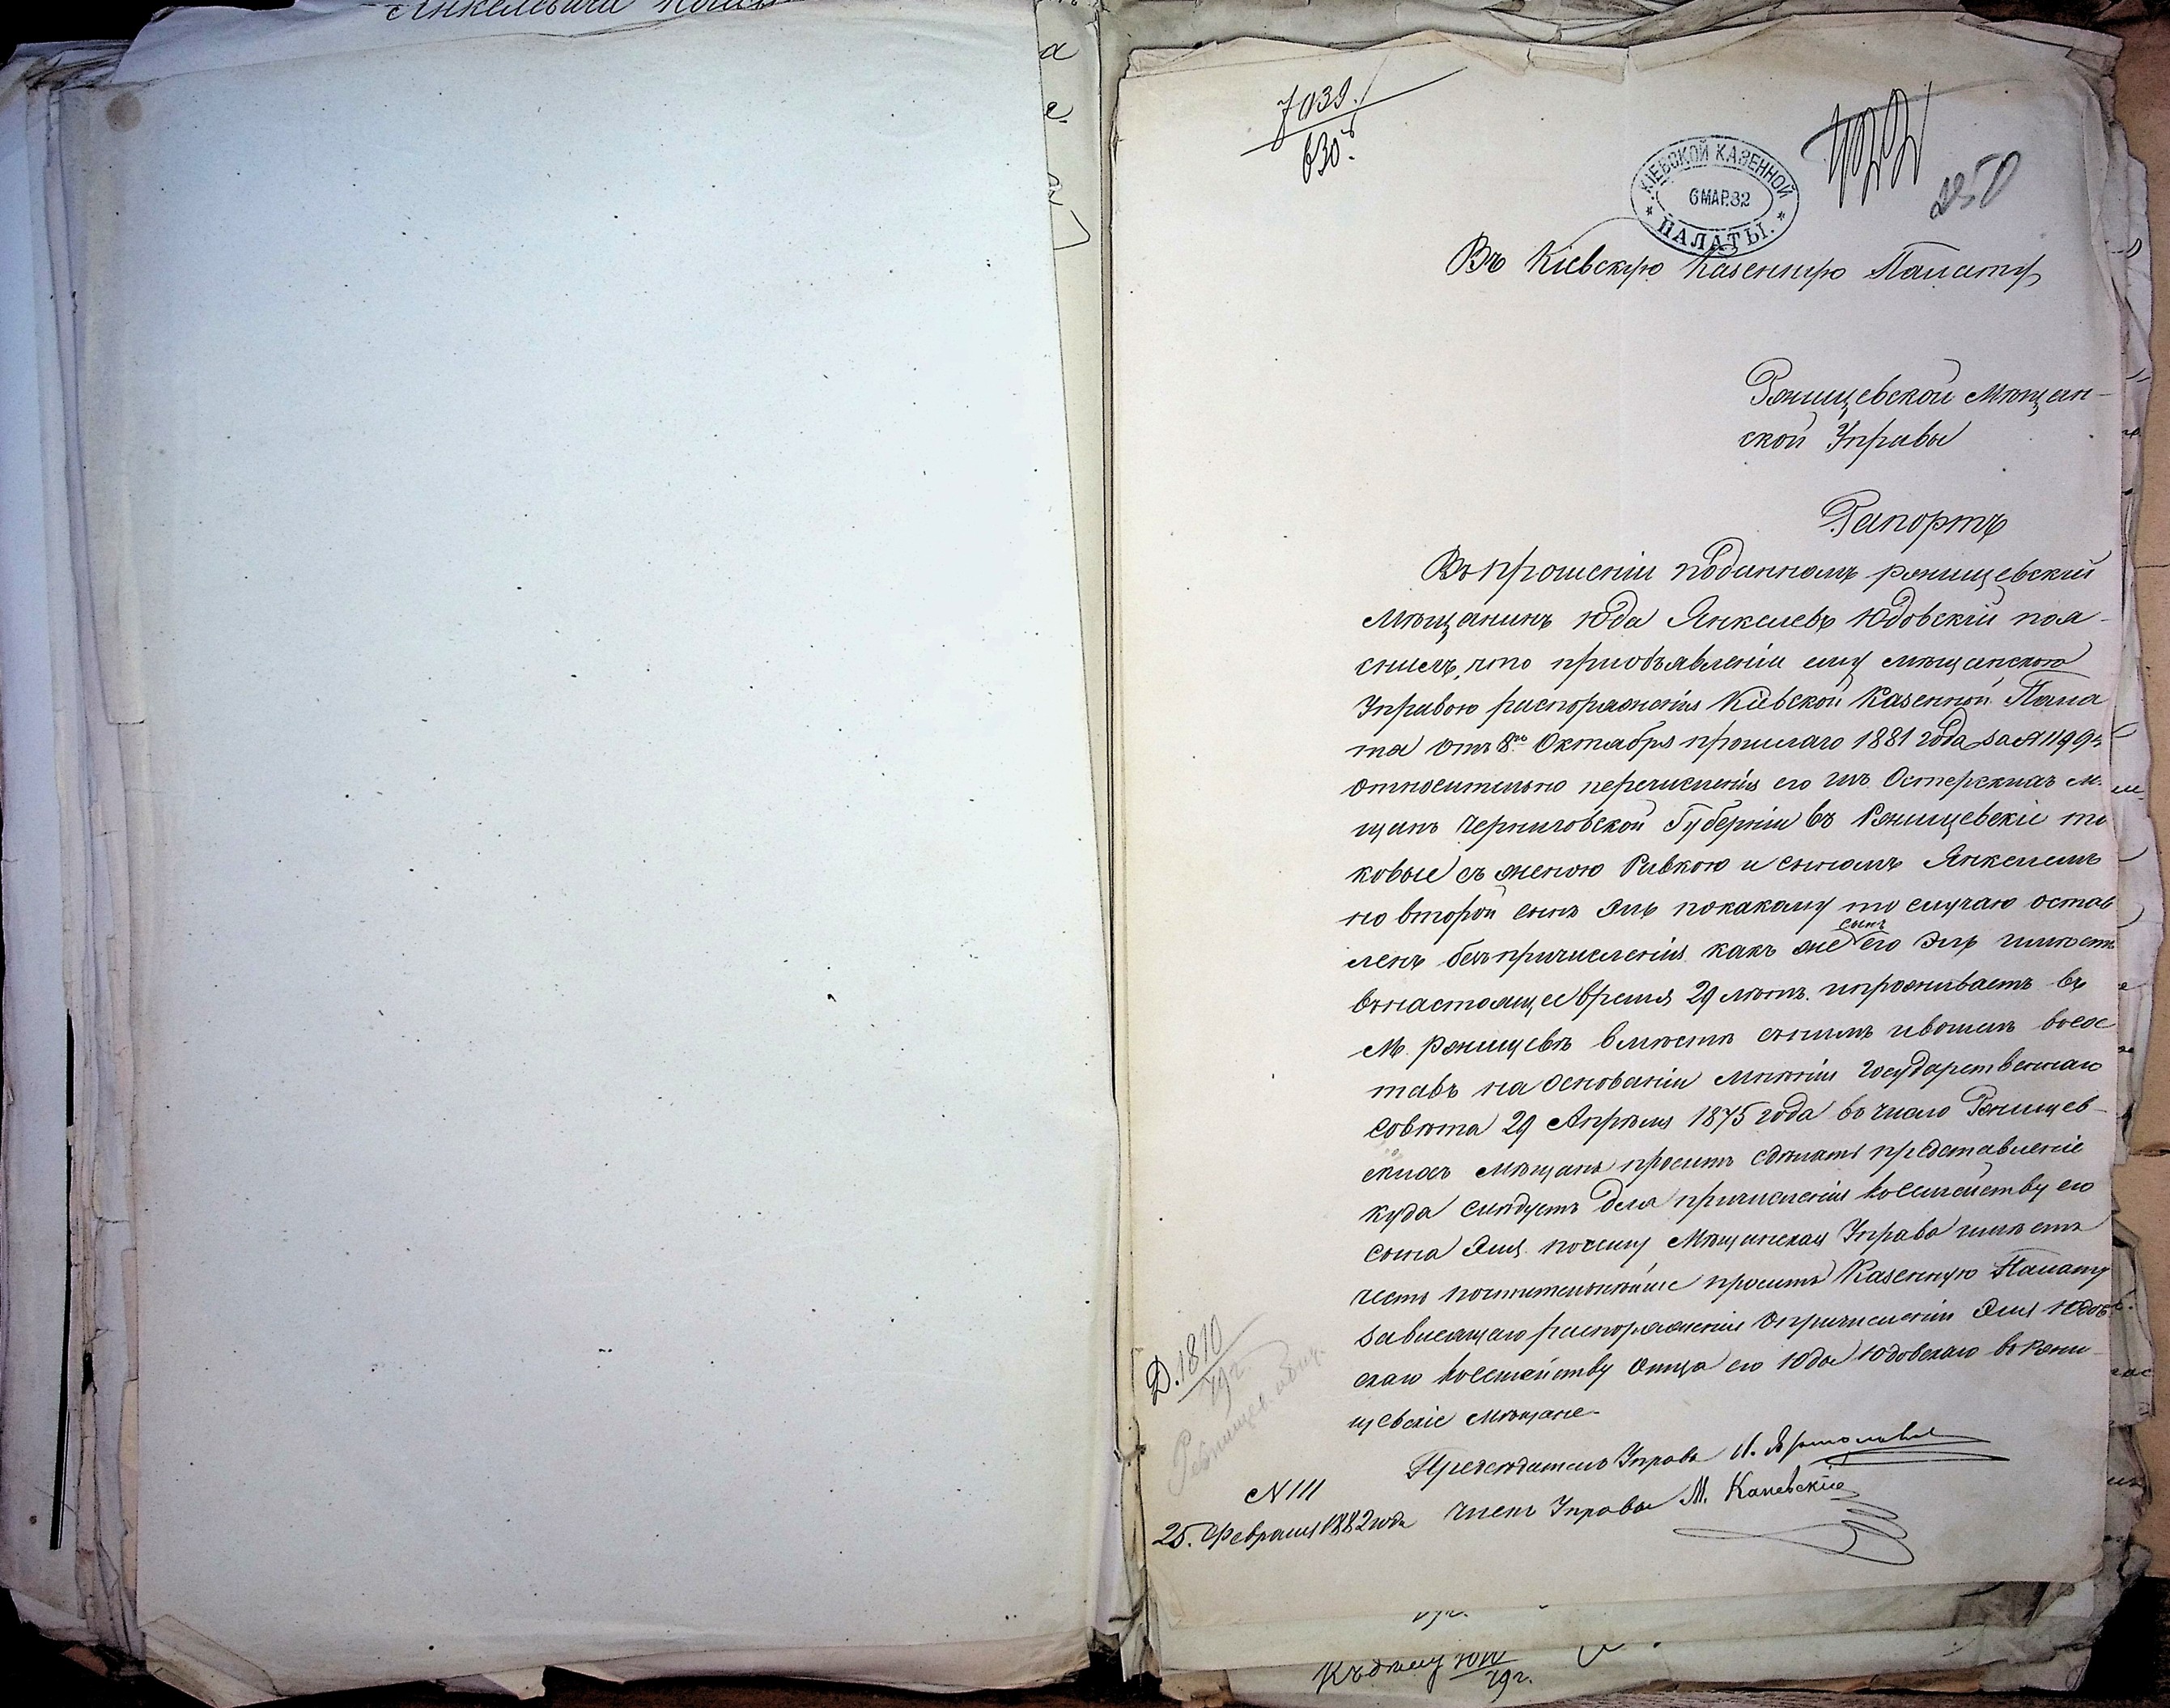 а
е.
7039.
630.
КІЕВСКОЙ КАЗЕННОЙ
6 МАР. 82
ПАЛАТЫ.
250
Въ Кіевскую Казенную Палату
Ржищевской Мѣщан-
ской Управы
Рапортъ
Въ прошеніи поданномъ ржищевскій
мѣщанинъ Юда Янкелевъ Юдовскій поя-
снилъ, что приобъявленіи ему мѣщанскою
Управою распоряженія Кіевской Казенной Пала
ты отъ 8го Октября прошлаго 1881 года за №
относительно перечисленія его изъ Остерскихъ м.
щанъ Черниговской Губерніи въ Ржищевскіе та
ковые съ женою Ривкою и сыномъ Янкелемъ
но второй сынъ Эль покакому то случаю остав
ленъ безъ причисленія какъ же сынъ его Эль имѣетъ
внастоящее время 29 лѣтъ. ипроживаетъ въ
М. ржищевѣ вмѣстѣ снимъ ивошелъ восос
тавъ на основаніи мнѣнія Государственнаго
Совѣта 29 Апрѣля 1875 года во число Ржищев-
скихъ мѣщанъ проситъ сдѣлать представленіе
куда слѣдуетъ для причисленія ксемейству его
сына Эля почему Мѣщанская Управа имѣетъ
честь почтительнѣйше просить Казенную Палату
зависящаго распоряженія опричисленіи Эля Юдов
скаго ксемейству отца его Юды Юдовскаго въ Ржи
щевскіе мѣщане.
Предсѣдатель Управы
Членъ Управы М. Каневскій
Д. 1810
79 г.
N 111
25. Февраля 1882 года
Къ дѣлу 1810
79 г.